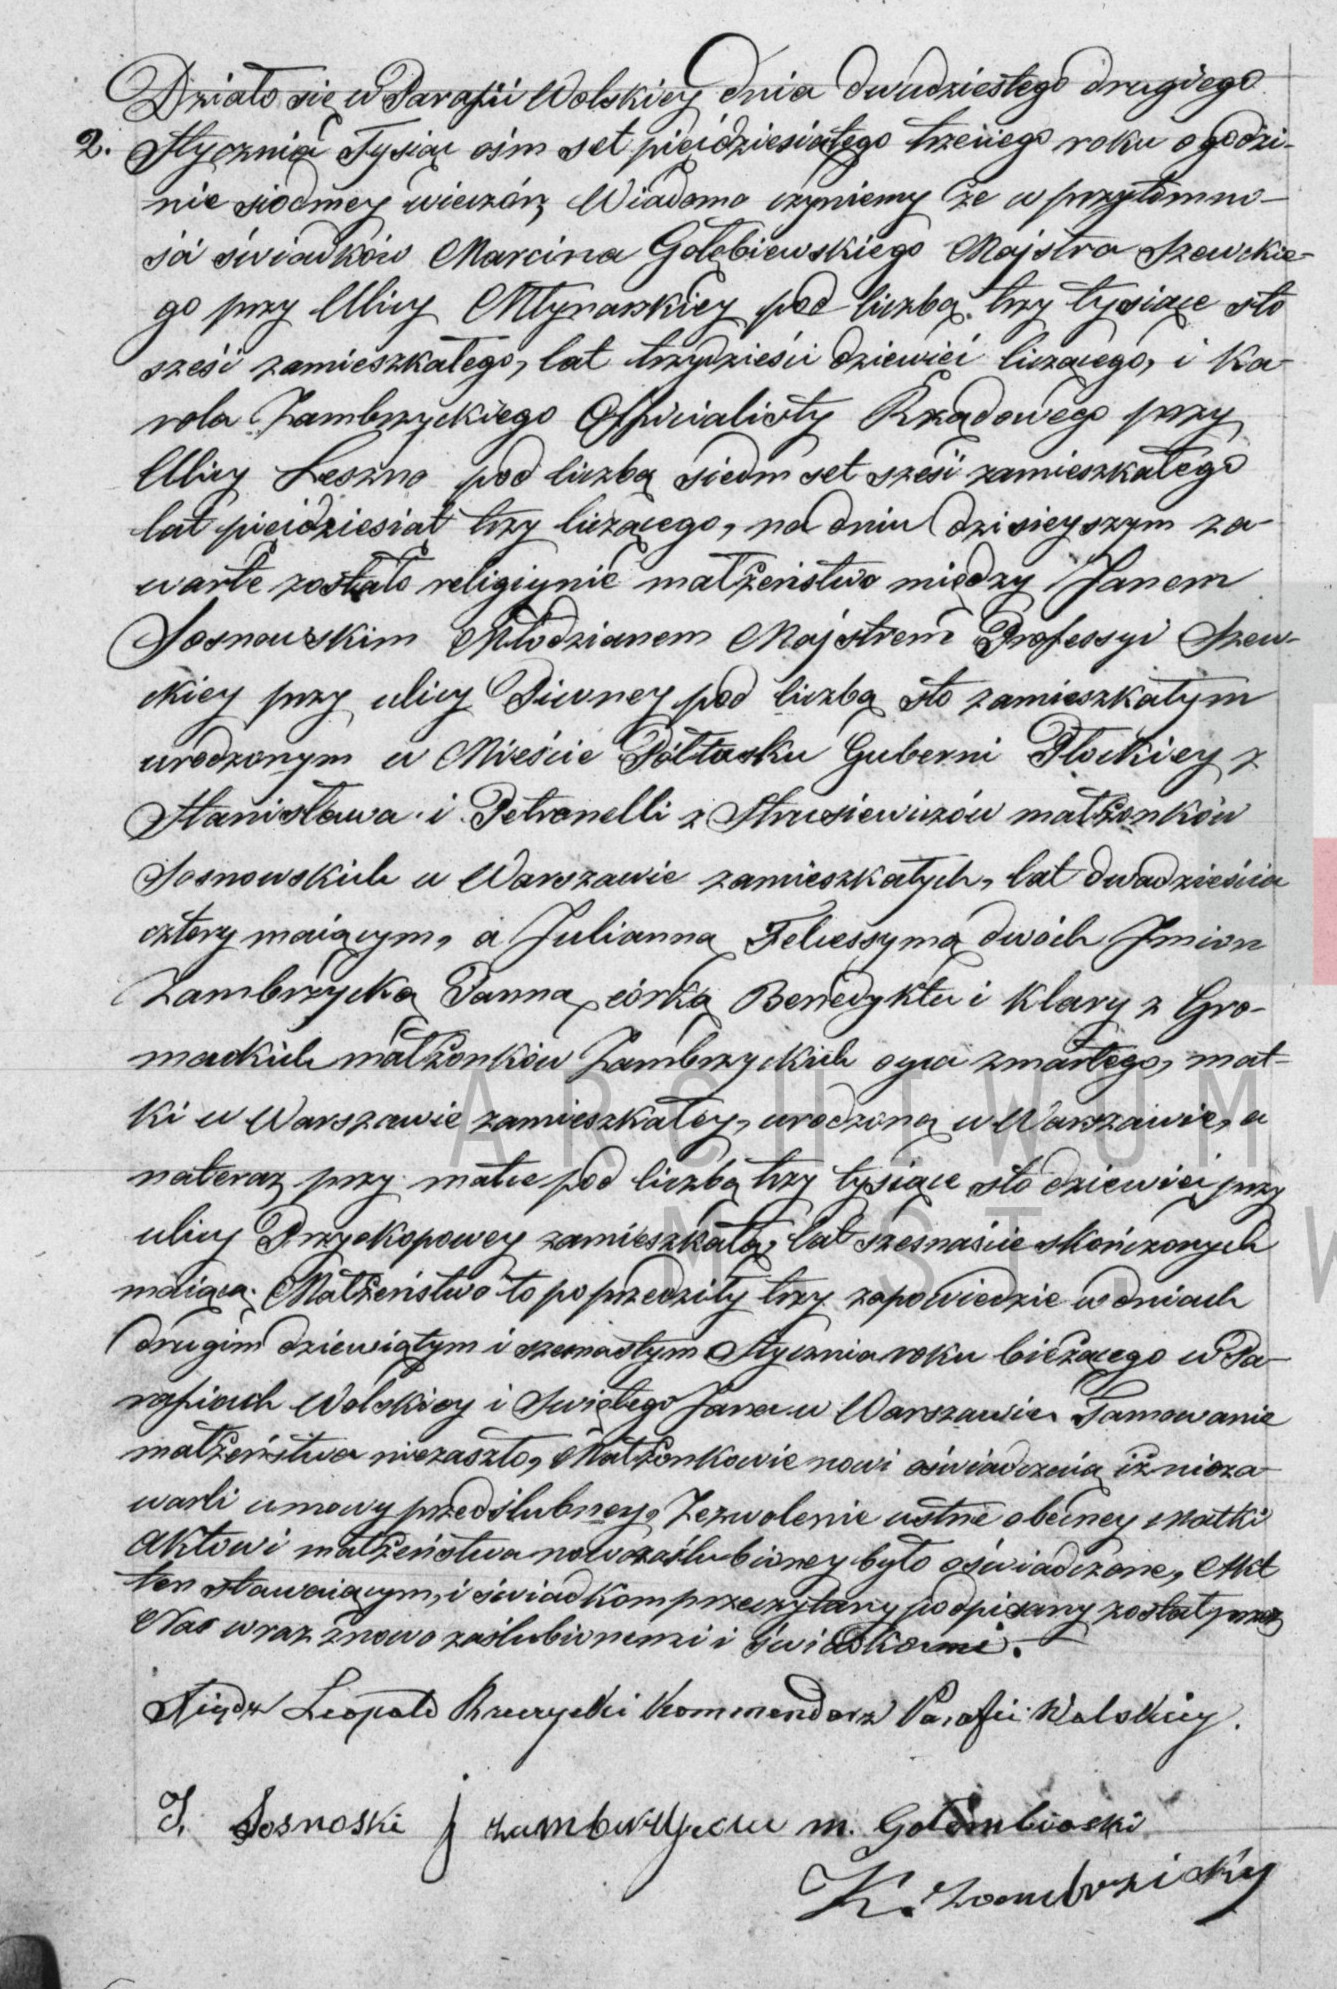 Działo się w Parafii Wolskiey dnia dwudziestego drugiego
2. Stycznia Tysiąc ośm set pięćdziesiątego trzeciego roku o godzi-
nie siódmey wieczór, Wiadomo czyniemy że w przytomno-
ści świadków Marcina Gołębiewskiego Majstra Szewckie-
go przy Ulicy Młynarskiey pod liczbą trzy tysiące sto
sześć zamieszkałego, lat trzydzieści dziewięć liczącego, i Ka-
rola Zambrzyckiego Officialisty Rządowego przy
Ulicy Leszno pod liczbą siedm set sześć zamieszkałego
lat pięćdziesiąt trzy liczącego, na dniu dzisieyszym za-
warte zostało religiynie małżeństwo między Janem
Sosnowskim Młodzianem Majstrem Professyi Szew-
ckiey przy ulicy Piwney pod liczbą sto zamieszkałym
urodzonym w Mieście Półtusku Guberni Płockiey z
Stanisława i Petronelli z Strusiewiczów małżonków
Sosnowskich w Warszawie zamieszkałych, lat dwadzieścia
cztery maiącym, a Julianną Felicssymą dwóch Imion
Zambrzycką Panną, córką Benedykta i Klary z Gro-
mackich małżonków Zambrzyckich oyca zmarłego, mat-
ki w Warszawie zamieszkałey, urodzoną w Warszawie, a
nateraz przy matce pod liczbą trzy tysiące sto dziewięć przy
ulicy Przyokopowey zamieszkałą, lat szesnaście skończonych
maiącą. Małżeństwo to poprzedziły trzy zapowiedzie w dniach
drugim dziewiątym i szesnastym Stycznia roku bieżącego w Pa-
rafiach Wolskiey i Świętego Jana w Warszawie. Tamowanie
małżeństwa niezaszło, Małżonkowie nowi oświadczaią iż nieza-
warli umowy przedślubney. Zezwolenie ustne obecney Matki
Aktowi małżeństwa nowozaślubioney było oświadczone, Akt
ten stawaiącym, i świadkom przeczytany podpisany został przez
Nas wraz z nowo zaślubionemi i świadkami.
Xiądz Leopold Rzeczycki Kommendarz Parafii Wolskiey.
J. Sosnoski J m. Gołembioski
K. Zambrzicky
ARCHIWUM
M. ST. W